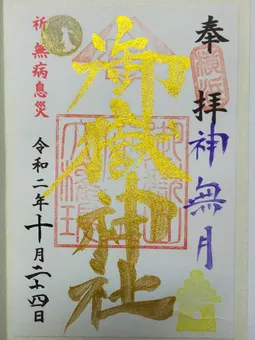 奉拝
神無月
御嶽神社
祈 無病息災
令和二年十月二十四日